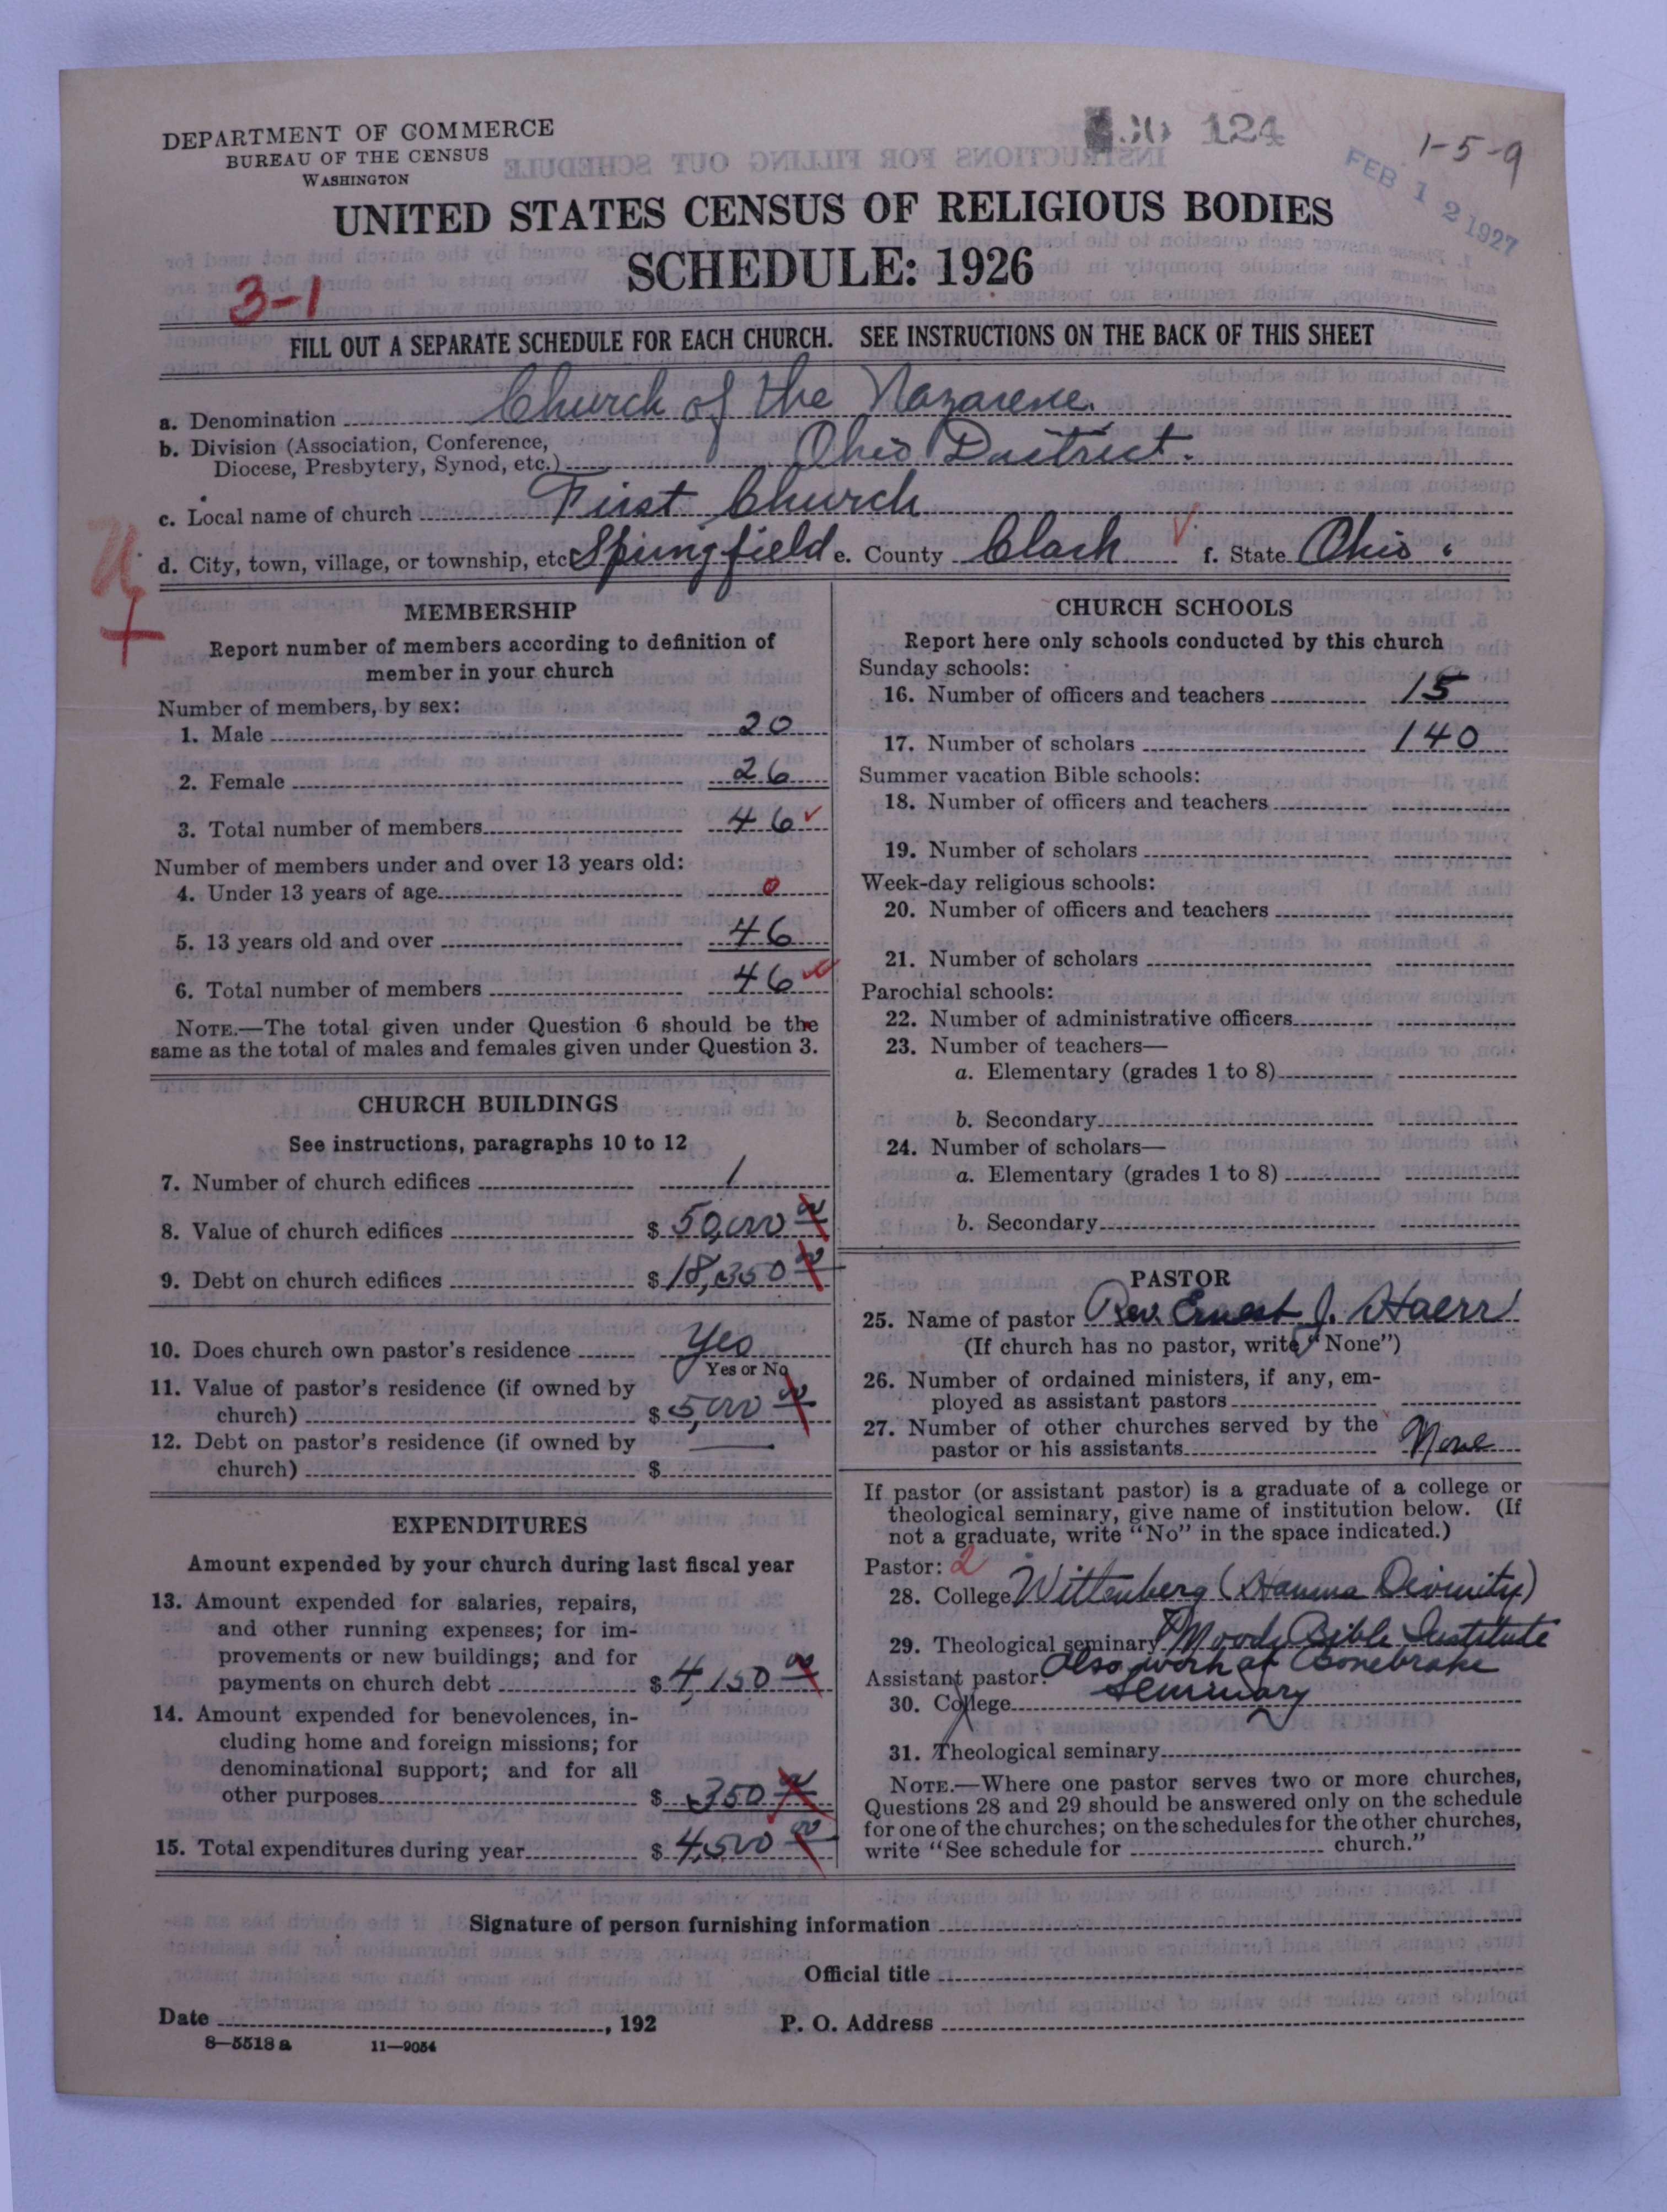 DEPARTMENT OF COMMERCE
BUREAU OF THE CENSUS
WASHINGTON
124
1-5-9
FEB 12 1927
UNITED STATES CENSUS OF RELIGIOUS BODIES
SCHEDULE: 1926
3-1
FILL OUT A SEPARATE SCHEDULE FOR EACH CHURCH. SEE INSTRUCTIONS ON THE BACK OF THIS SHEET
a. Denomination Church of the Nazarene.
b. Division (Association, Conference,
Diocese, Presbytery, Synod, etc.) Ohio District.
c. Local name of church First Church
d. City, town, village, or township, etc. Springfield e. County Clark f. State Ohio.
MEMBERSHIP
Report number of members according to definition of
member in your church
Number of members, by sex:
1. Male 20
2. Female 26
3. Total number of members 46
Number of members under and over 13 years old:
4. Under 13 years of age 0
5. 13 years old and over 46
6. Total number of members 46
NOTE.—The total given under Question 6 should be the
same as the total of males and females given under Question 3.
CHURCH BUILDINGS
See instructions, paragraphs 10 to 12
7. Number of church edifices 1
8. Value of church edifices $ 50,000 00
9. Debt on church edifices $ 18,350 00
10. Does church own pastor's residence Yes
Yes or No
11. Value of pastor's residence (if owned by
church) $ 5,000 00
12. Debt on pastor's residence (if owned by
church) $
EXPENDITURES
Amount expended by your church during last fiscal year
13. Amount expended for salaries, repairs,
and other running expenses; for im-
provements or new buildings; and for
payments on church debt $ 4,150 00
14. Amount expended for benevolences, in-
cluding home and foreign missions; for
denominational support; and for all
other purposes $ 350 00
15. Total expenditures during year $ 4,500 00
CHURCH SCHOOLS
Report here only schools conducted by this church
Sunday schools:
16. Number of officers and teachers 15
17. Number of scholars 140
Summer vacation Bible schools:
18. Number of officers and teachers
19. Number of scholars
Week-day religious schools:
20. Number of officers and teachers
21. Number of scholars
Parochial schools:
22. Number of administrative officers
23. Number of teachers—
a. Elementary (grades 1 to 8)
b. Secondary
24. Number of scholars—
a. Elementary (grades 1 to 8)
b. Secondary
PASTOR
25. Name of pastor Rev. Ernest J. Haerr
(If church has no pastor, write "None")
26. Number of ordained ministers, if any, em-
ployed as assistant pastors
27. Number of other churches served by the
pastor or his assistants None
If pastor (or assistant pastor) is a graduate of a college or
theological seminary, give name of institution below. (If
not a graduate, write "No" in the space indicated.)
Pastor: 2
28. College Wittenberg (Hamma Divinity)
29. Theological seminary Moody Bible Institute
Assistant pastor: Also work at Bonebrake
30. College Seminary
31. Theological seminary
NOTE.—Where one pastor serves two or more churches,
Questions 28 and 29 should be answered only on the schedule
for one of the churches; on the schedules for the other churches,
write "See schedule for church."
Signature of person furnishing information
Official title
Date , 192
P. O. Address
8—5518 a 11—9054